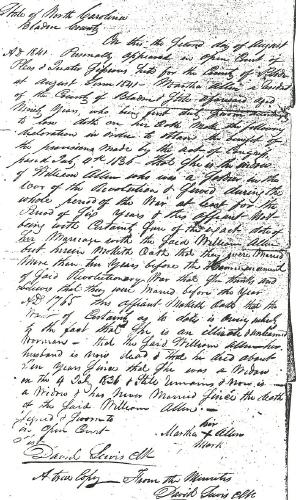 State of North Carolina
Bladen County
On this the second day of August
AD 1841. Personally appeared in open Court of
Pleas & Quarter Sessions for the County of Bladen
at August Term 1841. Martha Allen a resident
of the County of Bladen & State aforesaid aged
Ninety Years, who being first duly sworn according
to law doth on her oath make the following
declaration in order to obtain the benefit of
the provisions made by the act of Congress
passed July 4th 1836 that She is the widow
of William Allen who was a Soldier in the
War of the Revolution & Served during the
whole period of the War at least for the
Period of Six Years & this affiant Not
being with Certainty Sure of the exact date of
her Marriage with the Said William Allen
but herein Maketh Oath that they were Married
More than ten Years before the Commencement
of Said Revolutionary War that She thinks and
believes that they were Married before the Year
AD 1765 this affiant Maketh Oath that the
Want of Certainty as to date is owing
by the fact that She is an illiterate & unlearned
Woman - that the Said William Allen her
husband is now dead & that he died about
Ten Years Since that She was a Widow
on the 4 July 1836 & Still Remains & Now is
a Widow & has Never Married Since the death
of the Said William Allen.
Signed & Sworn to
in Open Court
Test
her
Martha X Allen
Mark
David Lewis Clk
A true Copy - From the Minutes
David Lewis Clk